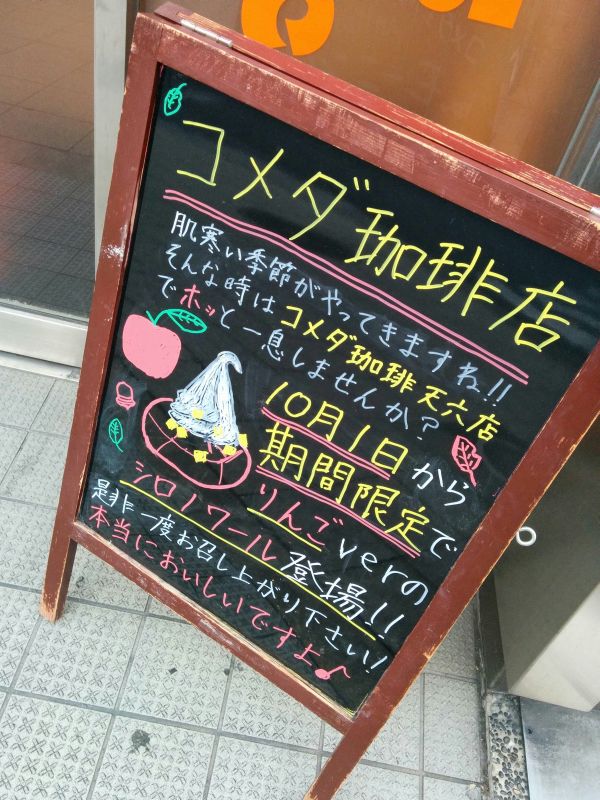 コメダ珈琲店
肌寒い季節がやってきますね!!
そんな時はコメダ珈琲天六店
でホッと一息しませんか?
10月1日から
期間限定で
りんごverの
シロノワール登場!!
是非一度お召し上がり下さい!
本当においしいですよ♪